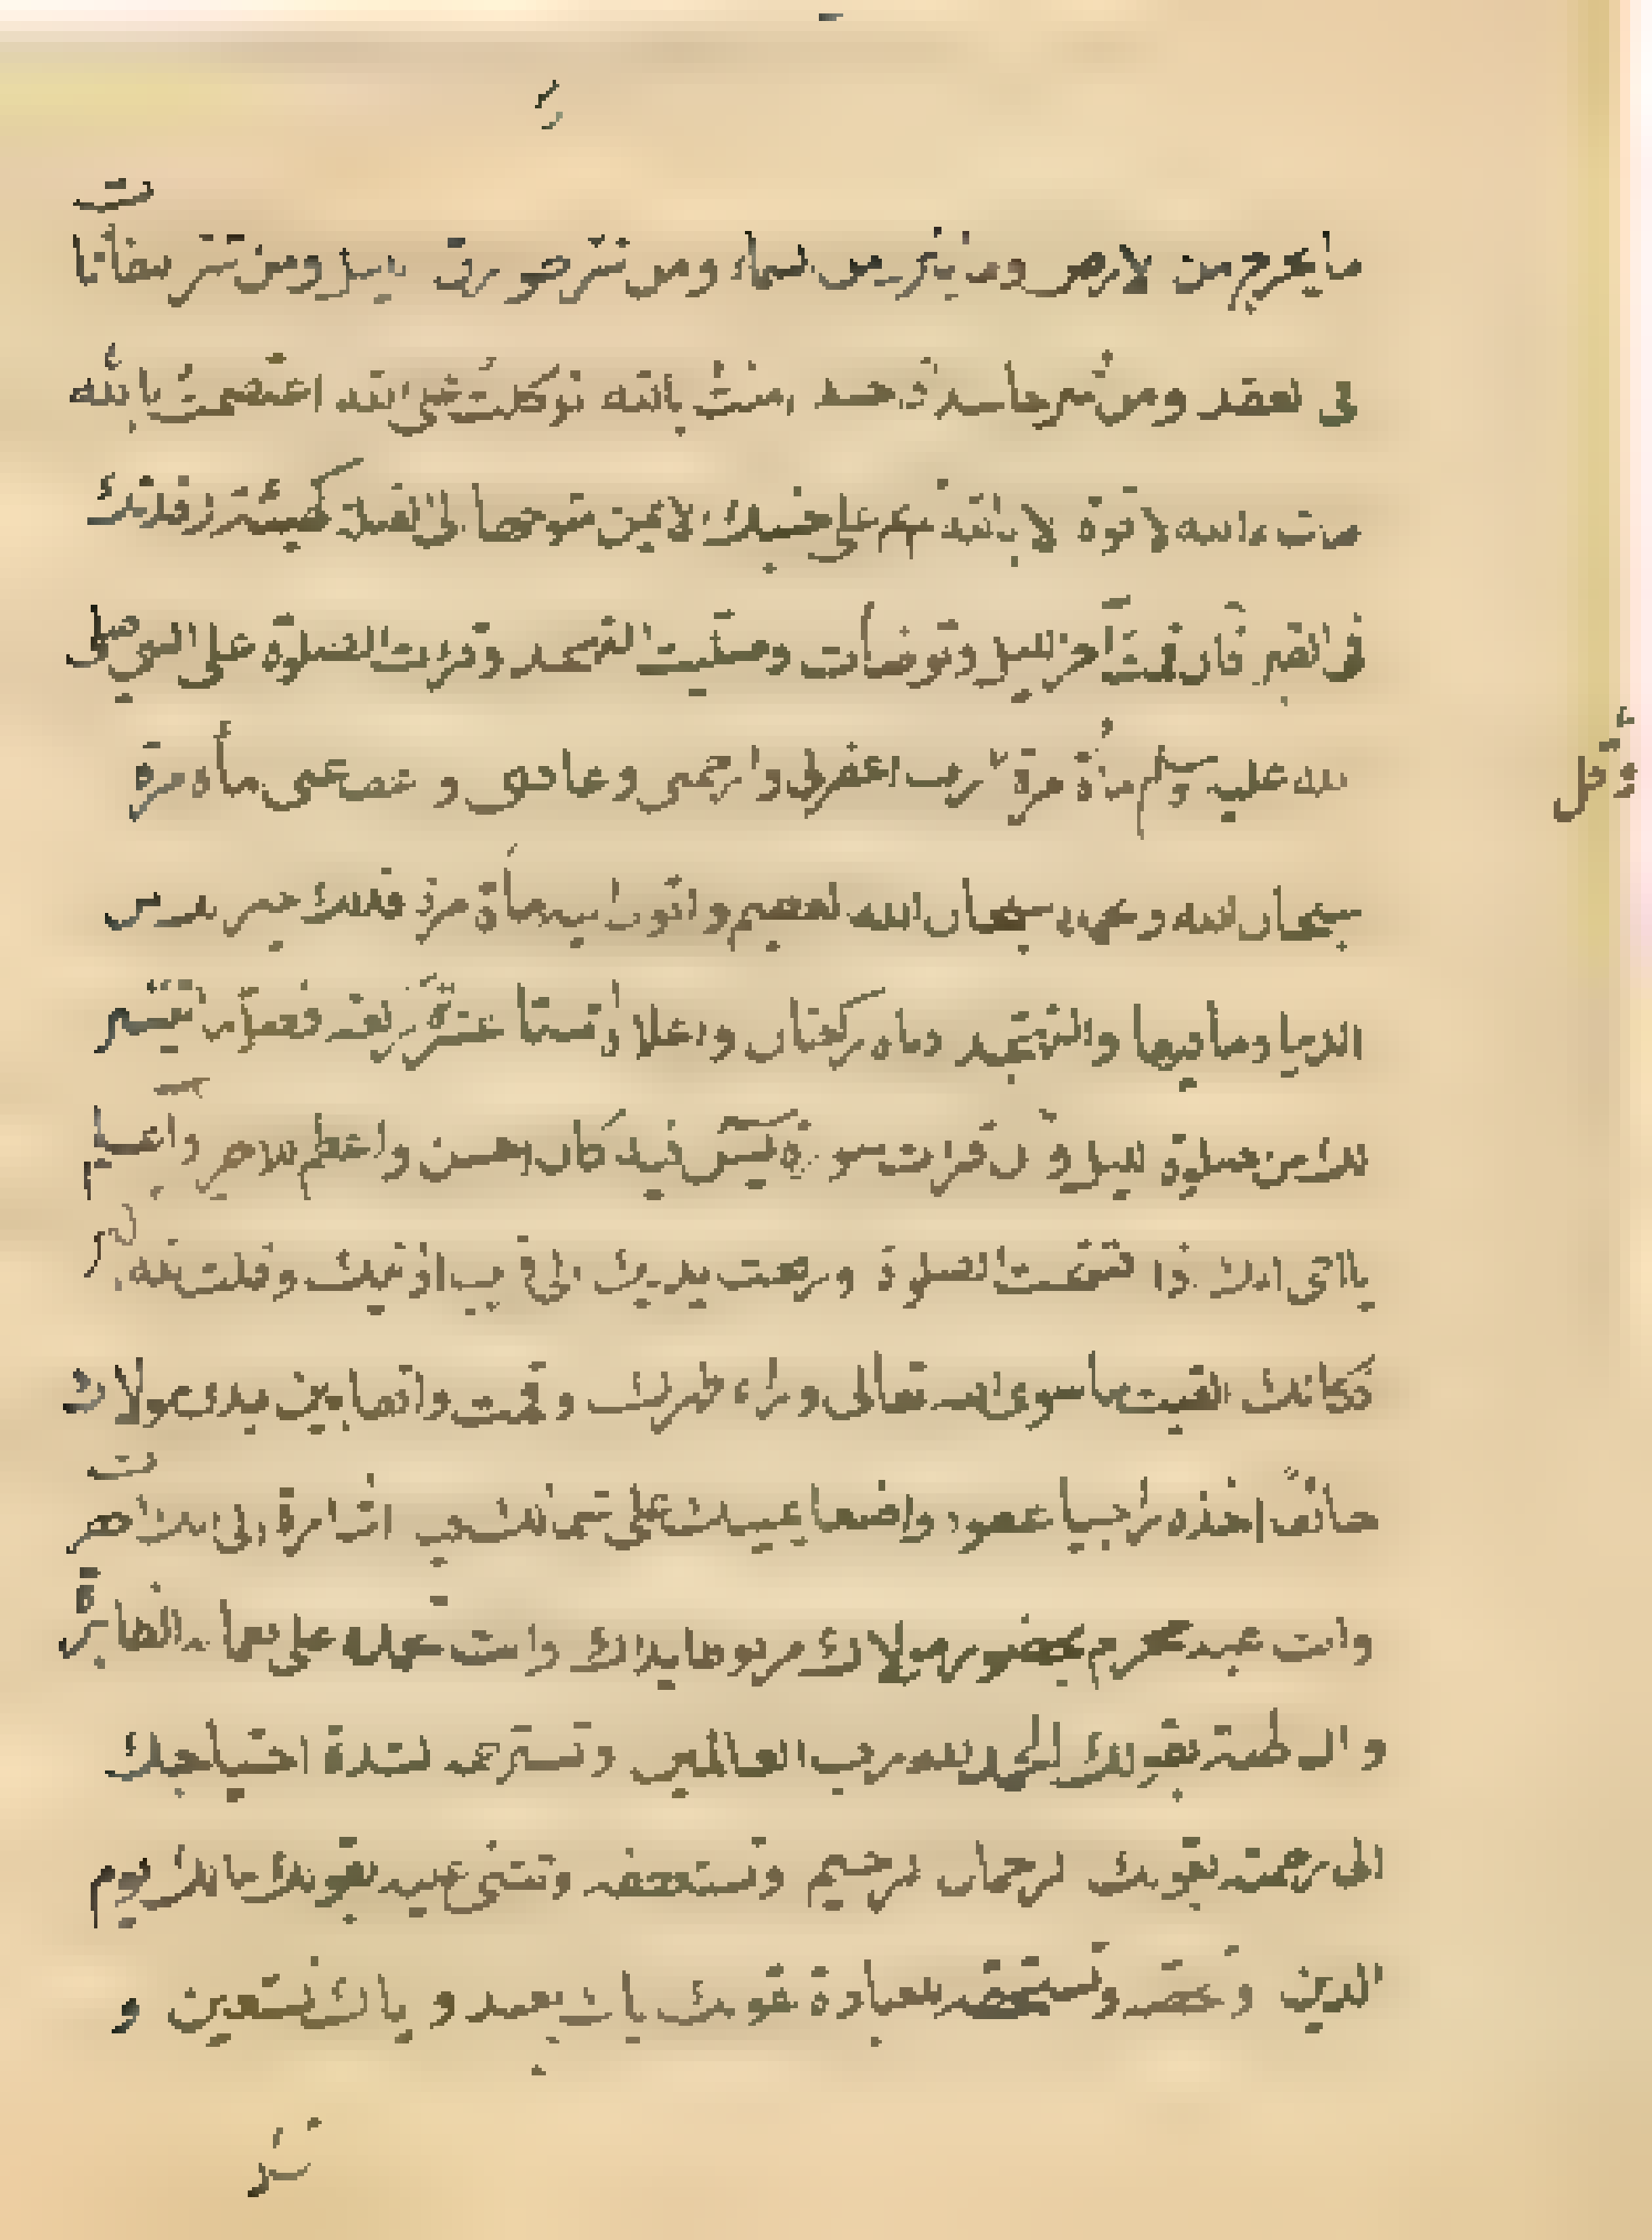 ما يخرج من الارض وما ينزل من السماء ومن شر طوارق الليل ومن شر النفاثات
فى العقد ومن شر حاسد اذا حسد امنت بالله توكلت على الله اعتصمت بالله
ما شاء الله لا قوة الا بالله نم على جنبك الايمن متوجها الى القبلة كهيئة رقدتك
فى القبر فان قمت اخر الليل وتوضأت وصليت التهجد وقرئت الصلوة على النبى صلى
الله عليه وسلم مأة مرة رب اغفرلى وارحمنى وعافنى و اعف عنى مأة مرة
وقل
سبحان الله وبحمده سبحان الله العظيم واتوب اليه مأة مرة فذلك خير لك من
الدنيا وما فيها والتهجد ادناه ركعتان واعلاه اثنتا عشرة ركعة فصل ما تيسر
لك من صلوة الليل و ان قرئت سورة يس فيه كان احسن واعظم للاجر واعلم
يا اخى انك اذا افتتحت الصلوة ورفعت يديك الى قرب اذنيك وقلت الله اكبر
فكانك القيت ما سوى الله تعالى وراء ظهرك وقمت واقفا بين يدى مولاك
خائفا اخذه راجيا عفوه واضعا يمينك على شمالك تحت السرة اشارة الى انك احقر
وانت عبد مجرم بحضور مولاك مربوطا يداك وانت تحمده على نعمائه الظاهرة
والباطنة بقولك الحمد لله رب العالمين وتسترحمه لشدة احتياجك
الى رحمته بقولك الرحمان الرحيم وتستعطفه وتثنى عليه بقولك مالك يوم
الدين و تخصه وتستحقه للعبادة بقولك اياك نعبد و اياك نستعين و